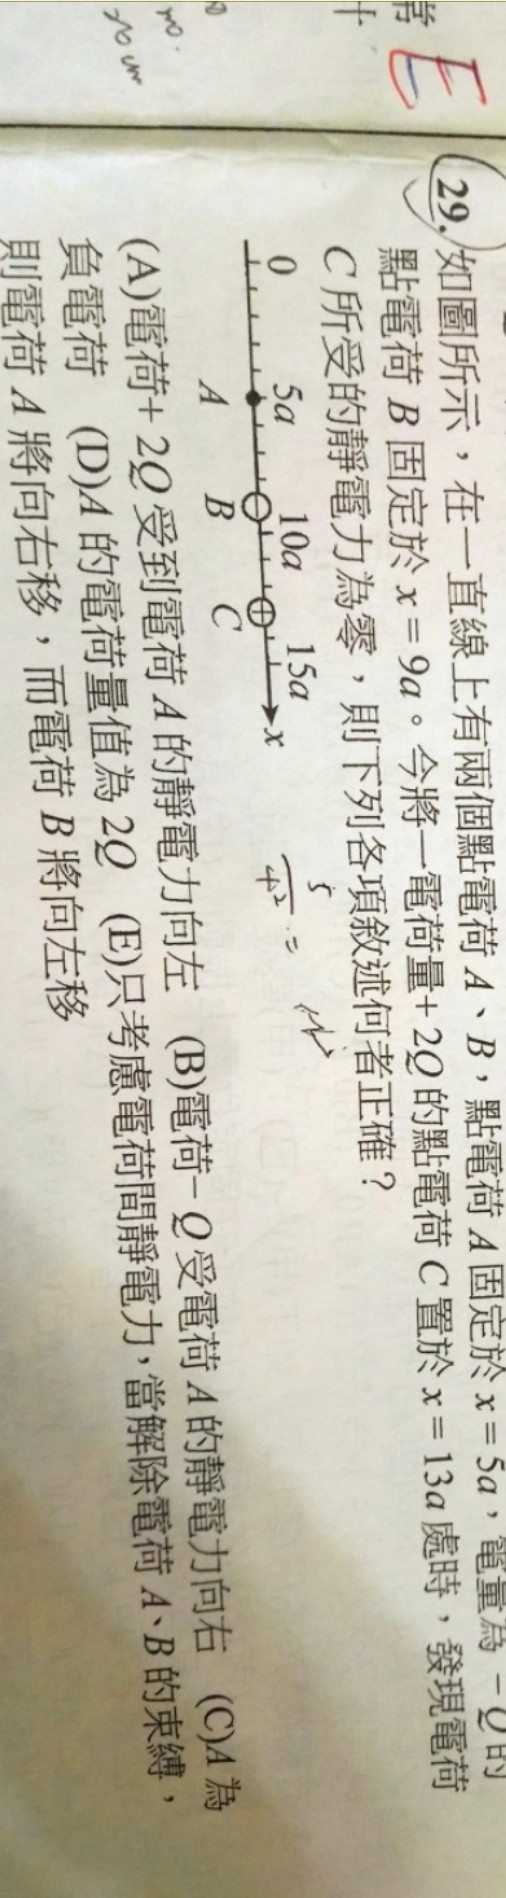 E
29. 如圖所示，在一直線上有兩個點電荷 A、B，點電荷 A 固定於 x = 5a，電量為 − Q 的
點電荷 B 固定於 x = 9a。今將一電荷量+ 2Q 的點電荷 C 置於 x = 13a 處時，發現電荷
C 所受的靜電力為零，則下列各項敘述何者正確？
0 5a 10a 15a
x
A B C
(A)電荷+ 2Q 受到電荷 A 的靜電力向左 (B)電荷− Q 受電荷 A 的靜電力向右 (C)A 為
負電荷 (D)A 的電荷量值為 2Q (E)只考慮電荷間靜電力，當解除電荷 A、B 的束縛，
則電荷 A 將向右移，而電荷 B 將向左移